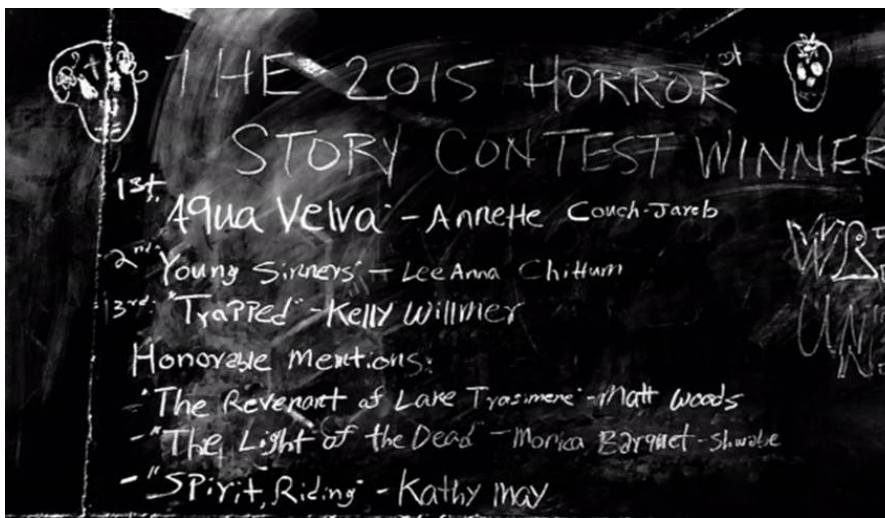 THE 2015 HORROR
STORY CONTEST WINNER
1st. Aqua Velva" - Annette Couch-Jareb
2nd. "Young Sinners" - LeeAnna Chittum
3rd. "Trapped" - Kelly Willmer
Honorable Mentions:
- "The Revenant of Lake Trasimene" - Matt Woods
- "The Light of the Dead" - Monica Barquet-Shwabe
- "Spirit, Riding" - Kathy May